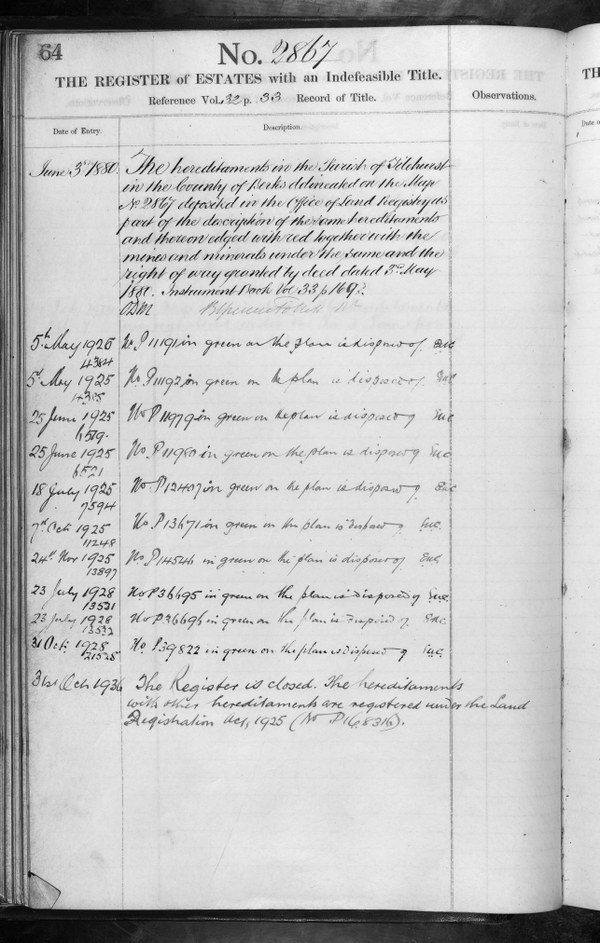 64
No. 2867
THE REGISTER of ESTATES with an Indefeasible Title.
Reference Vol. 32 p. 33 Record of Title.
Observations.
Date of Entry.
Description.
June 3rd 1880.
The hereditaments in the Parish of Tilehurst
in the County of Berks delineated on the Map
No 2867 deposited in the Office of Land Registry as
part of the description of the same hereditaments
and thereon edged with red together with the
mines and minerals under the same and the
right of way granted by deed dated 3rd May
1880. Instrument Book Vol 33 p 169.
5th May 1925 No. P 11191 in green on the plan is disposed of.
4364
5th May 1925 No. P 11192 in green on the plan is disposed of.
4365
25 June 1925 No P 11979 in green on the plan is disposed of
6519.
25 June 1925 No. P 11980 in green on the plan is disposed of
6521
18 July 1925 No P 12407 in green on the plan is disposed of
7594
7th Oct 1925 No P 13671 in green on the plan is disposed of
11248
24th Nov 1925 No P 14546 in green on the plan is disposed of
13897
23 July 1928 No P 36695 in green on the plan is disposed of
13531
23 July 1928 No P 36696 in green on the plan is disposed of.
13532
31 Oct. 1928 No P 39822 in green on the plan is disposed of
21525
31st Oct 1936 The Register is closed. The hereditaments
with other hereditaments are registered under the Land
Registration Act, 1925 (No P 168316).